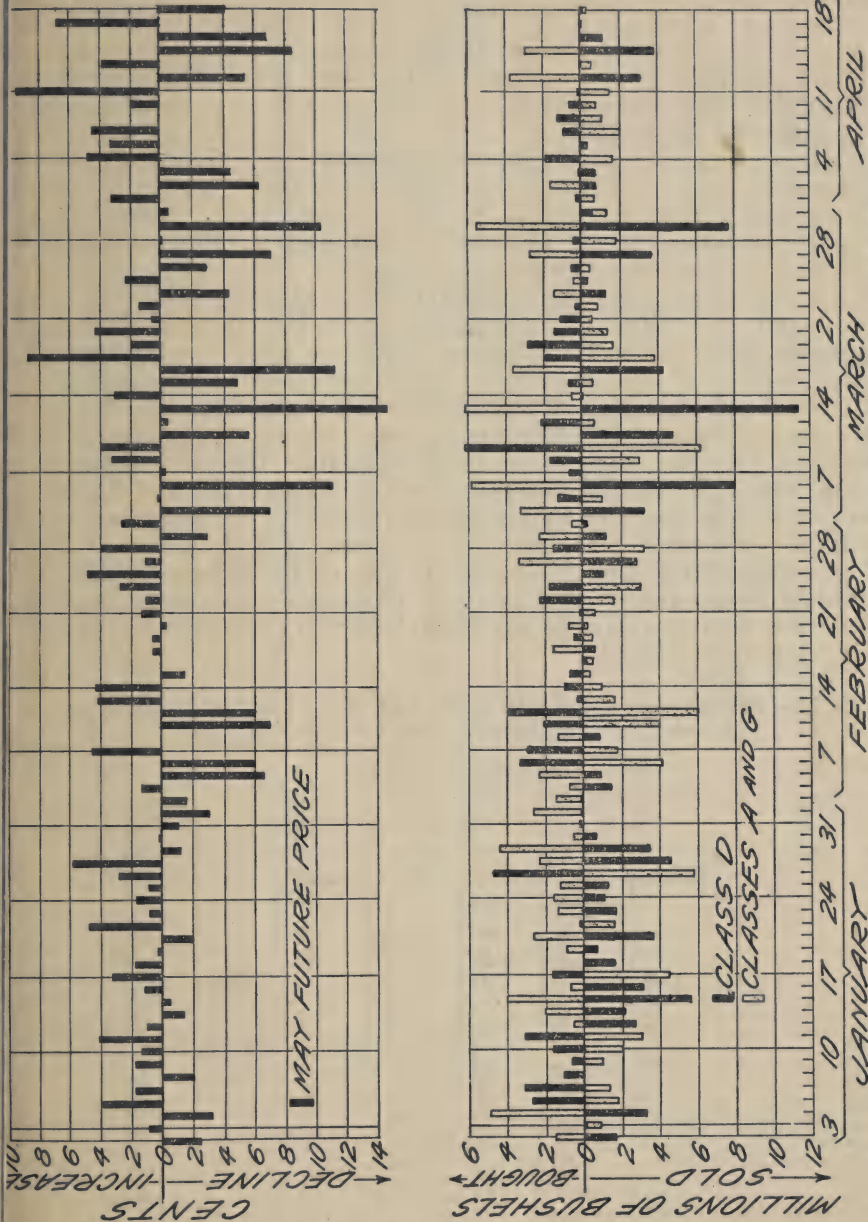 CENTS
DECLINE INCREASE
10 8 6 4 2 0 2 4 6 8 10 12 14
MAY FUTURE PRICE
MILLIONS OF BUSHELS
SOLD BOUGHT
6 4 2 0 2 4 6 8 10 12
CLASS D
CLASSES A AND G
3 10 17 24 31 7 14 21 28 7 14 21 28 4 11 18
JANUARY FEBRUARY MARCH APRIL